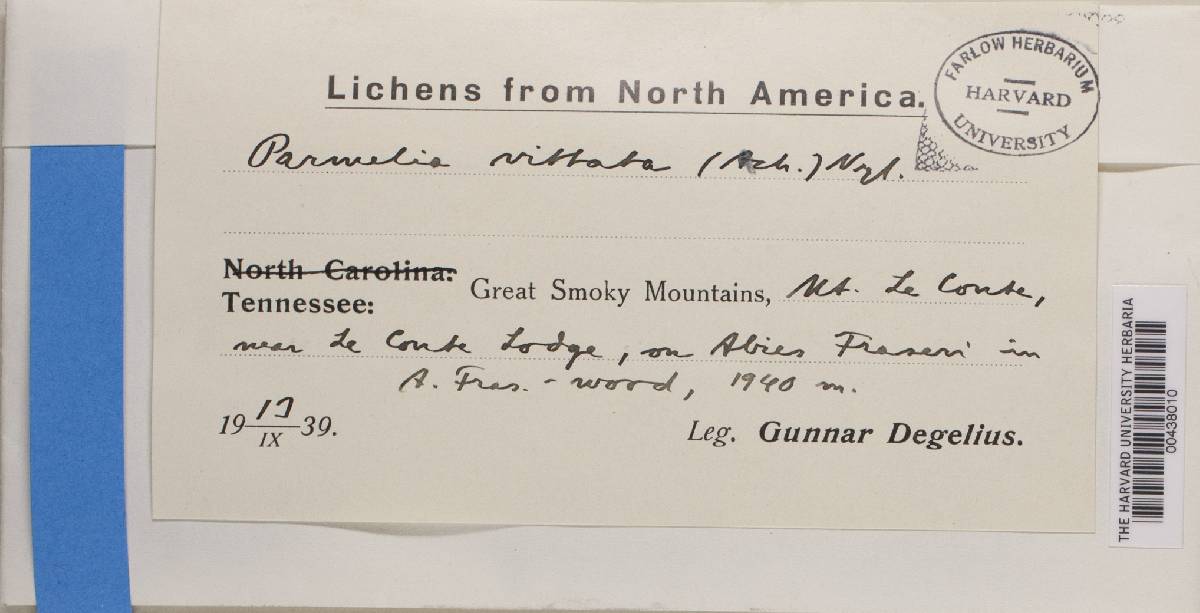 Lichens from North America.
FARLOW HERBARIUM
HARVARD
UNIVERSITY
Parmelia vittata (Ach.) Nyl.
North Carolina:
Tennessee:
Great Smoky Mountains, Mt. Le Conte,
near Le Conte Lodge, on Abies Fraseri in
A. Fras.-wood, 1940 m.
19 17/IX 39.
Leg. Gunnar Degelius.
THE HARVARD UNIVERSITY HERBARIA
00438010